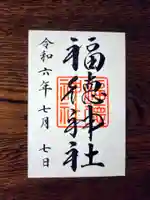 福徳神社
令和六年七月七日